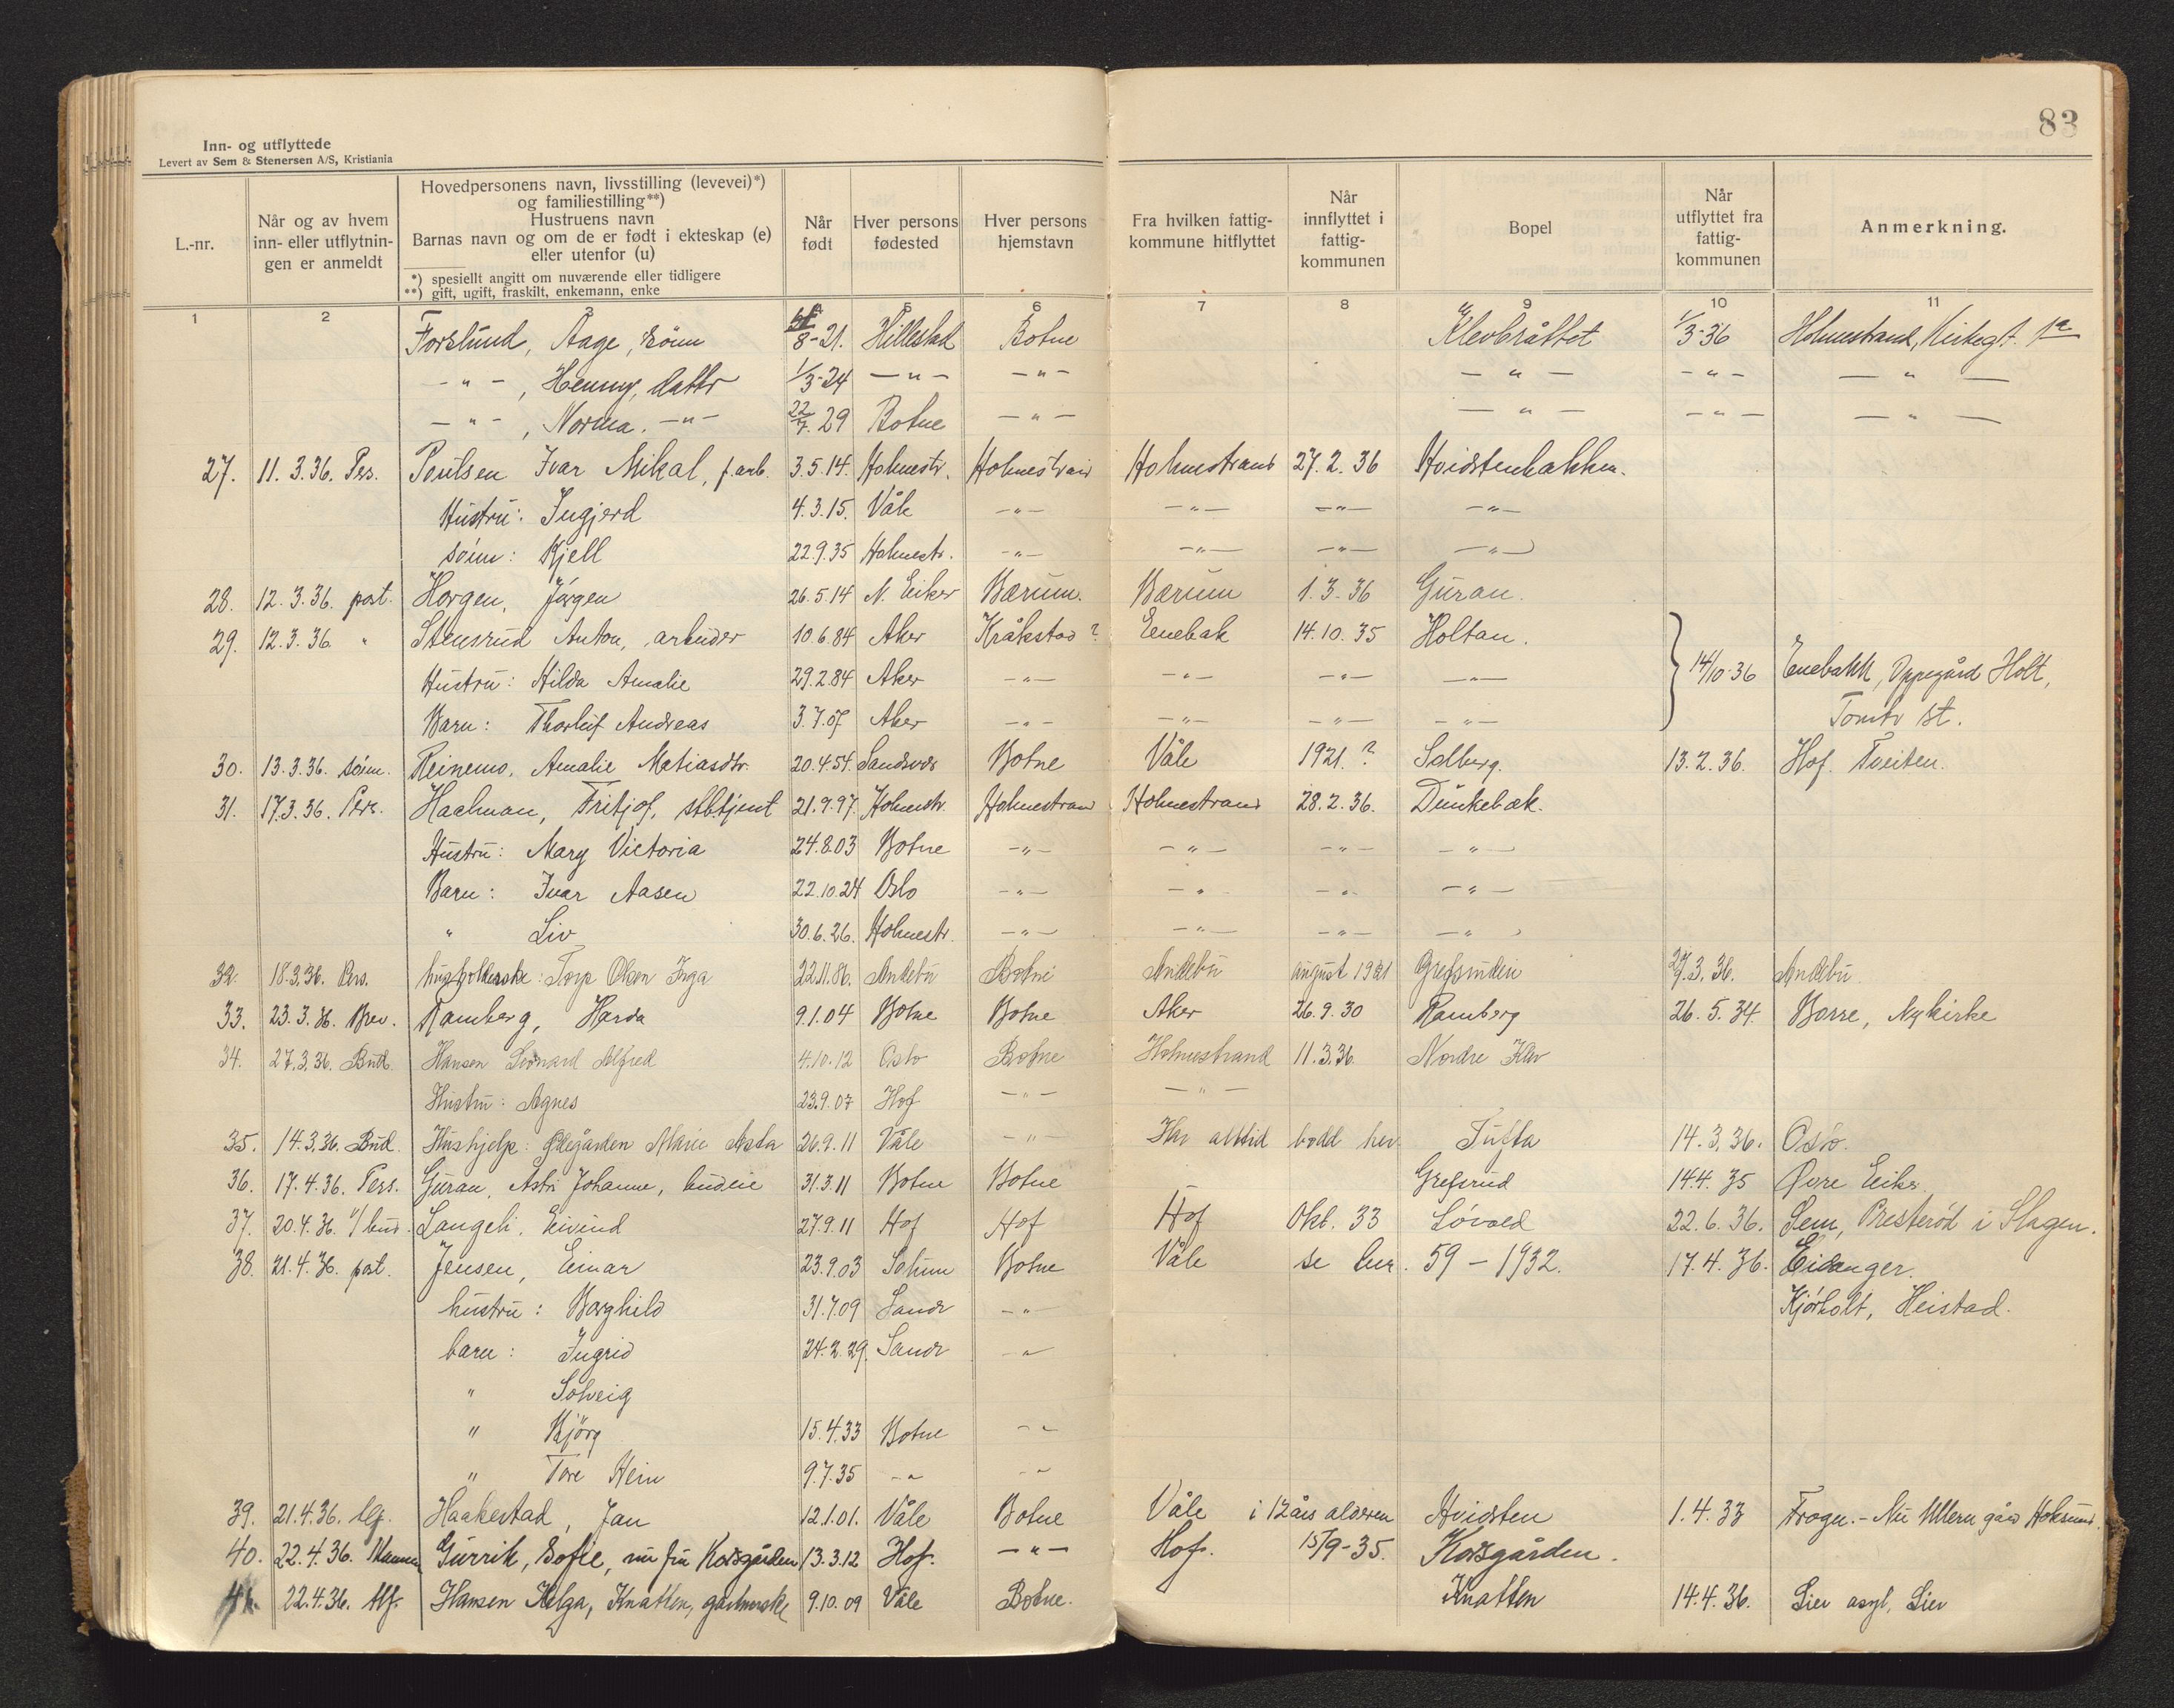 83
Inn- og utflyttede
Levert av Sem & Stenersen A/S, Kristiania
L.-nr.
Når og av hvem inn- eller utflytnin-gen er anmeldt
Hovedpersonens navn, livsstilling (levevei)*)
og familiestilling**)
Hustruens navn
Barnas navn og om de er født i ekteskap (e)
eller utenfor (u)
*) spesielt angitt om nuværende eller tidligere
**) gift, ugift, fraskilt, enkemann, enke
Når født
Hver persons fødested
Hver persons hjemstavn
Fra hvilken fattig-kommune hitflyttet
Når innflyttet i fattig-kommunen
Bopel
Når utflyttet fra fattig-kommunen
Anmerkning.
1 2 3 5 6 7 8 9 10 11
Forslund, Aage, sønn 8-21. Hillestad Botne Klevbråttet 1/3-36 Holmestrand, Kirkegt. 1a
-"- , Henny, dattr 1/3-24 -"- -"- -"- -"- -"-
-"- , Norma. -"- 22/7.29 Botne -"- -"- -"- -"-
27. 11.3.36. Pers. Poulsen Ivar Mikal, f.arb. 3.5.14. Holmestr. Holmestrand Holmestrand 27.2.36 Hvidstenbakken.
Hustru: Ingjerd 4.3.15. Våle -"- -"- -"- -"-
sønn: Kjell 22.9.35 Holmestr. -"- -"- -"- -"-
28. 12.3.36. post. Horgen, Jörgen 26.5.14 N. Eiker Bærum. Bærum 1.3.36 Guran.
29. 12.3.36. " Stensrud Anton, arbeider 10.6.84 Aker Kråkstad? Enebak 14.10.35 Holtan. 14/10-36 Enebakk, Oppegård Holt,
Hustru: Hilda Amalie 29.2.84 Aker -"- -"- -"- -"-
Barn: Thorleif Andreas 3.7.07 Aker -"- -"- -"- -"- Tomter st.
30. 13.3.36. sønn. Reinemo, Amalie Matiasdtr. 20.4.54. Sandsvær Botne Våle 1921.? Solberg. 13.2.36. Hof. Tveiten.
31. 17.3.36. Pers. Haahman, Fritjof, 21.9.97. Holmestr. Holmestrand Holmestrand 28.2.36. Dunkebæk.
Hustru: Mary Victoria 24.8.03 Botne -"- -"- -"- -"-
Barn: Ivar Aasen 22.10.24 Oslo -"- -"- -"- -"-
" Liv 30.6.26. Holmestr. -"- -"- -"- -"-
32. 18.3.36. Pers. husholderske: Torp Olsen Inga 22.11.86. Andebu Botne Andebu august 1921 Grefsrudeie .3.36. Andebu
33. 23.3.36. Brev. Ramberg, Harda 9.1.04 Botne Botne Aker 26.9.30 Ramberg 26.5.34. Borre, Nykirke
34. 27.3.36. Bud. Hansen Leonard Alfred 4.10.12 Oslo Botne Holmestrand 11.3.36. Nordre Klev
Hustru: Agnes 23.9.07 Hof -"- -"-
35. 14.3.36. Bud. Hushjelp: Ødegården Marie Asta 26.9.11 Våle -"- Har alltid bodd her. Tufta 14.3.36. Oslo.
36. 17.4.36. Pers. Guran, Astri Johanne, budeie 31.3.11 Botne Botne Grefsrud 14.4.35 Øvre Eiker.
37. 20.4.36. v/bud. Langeli, Eivind 27.9.11 Hof Hof Hof Okt. 33 Lövald 22.6.36. Sem, Presteröd i Slagen.
38. 21.4.36. post. Jensen, Einar 23.9.03 Solum Botne Våle se lnr. 59 - 1932. 17.4.36. Eidanger.
hustru: Borghild 31.7.09 Sande -"- Kjörholt, Heistad.
barn: Ingrid 24.2.29. Sande -"-
" Solveig
" Bjørg 15.4.33 Botne -"-
" Tore Hein 9.7.35 -"- -"-
39. 21.4.36. tlf. Haakestad, Jan 12.1.01. Våle Botne Våle i 12 års alderen Hvidsten 1.4.33 Frogn.- Nu Ullern gård Hoksund.
40. 22.4.36. Mannen Gurrik, Sofie, nu fru Korsgården 13.3.12 Hof. -"- Hof. 15/9-35. Korsgården.
41. 22.4.36. tlf. Hansen Helga, Knatten, gartnerske 9.10.09 Våle Botne. Knatten 14.4.36. Lier asyl, Lier